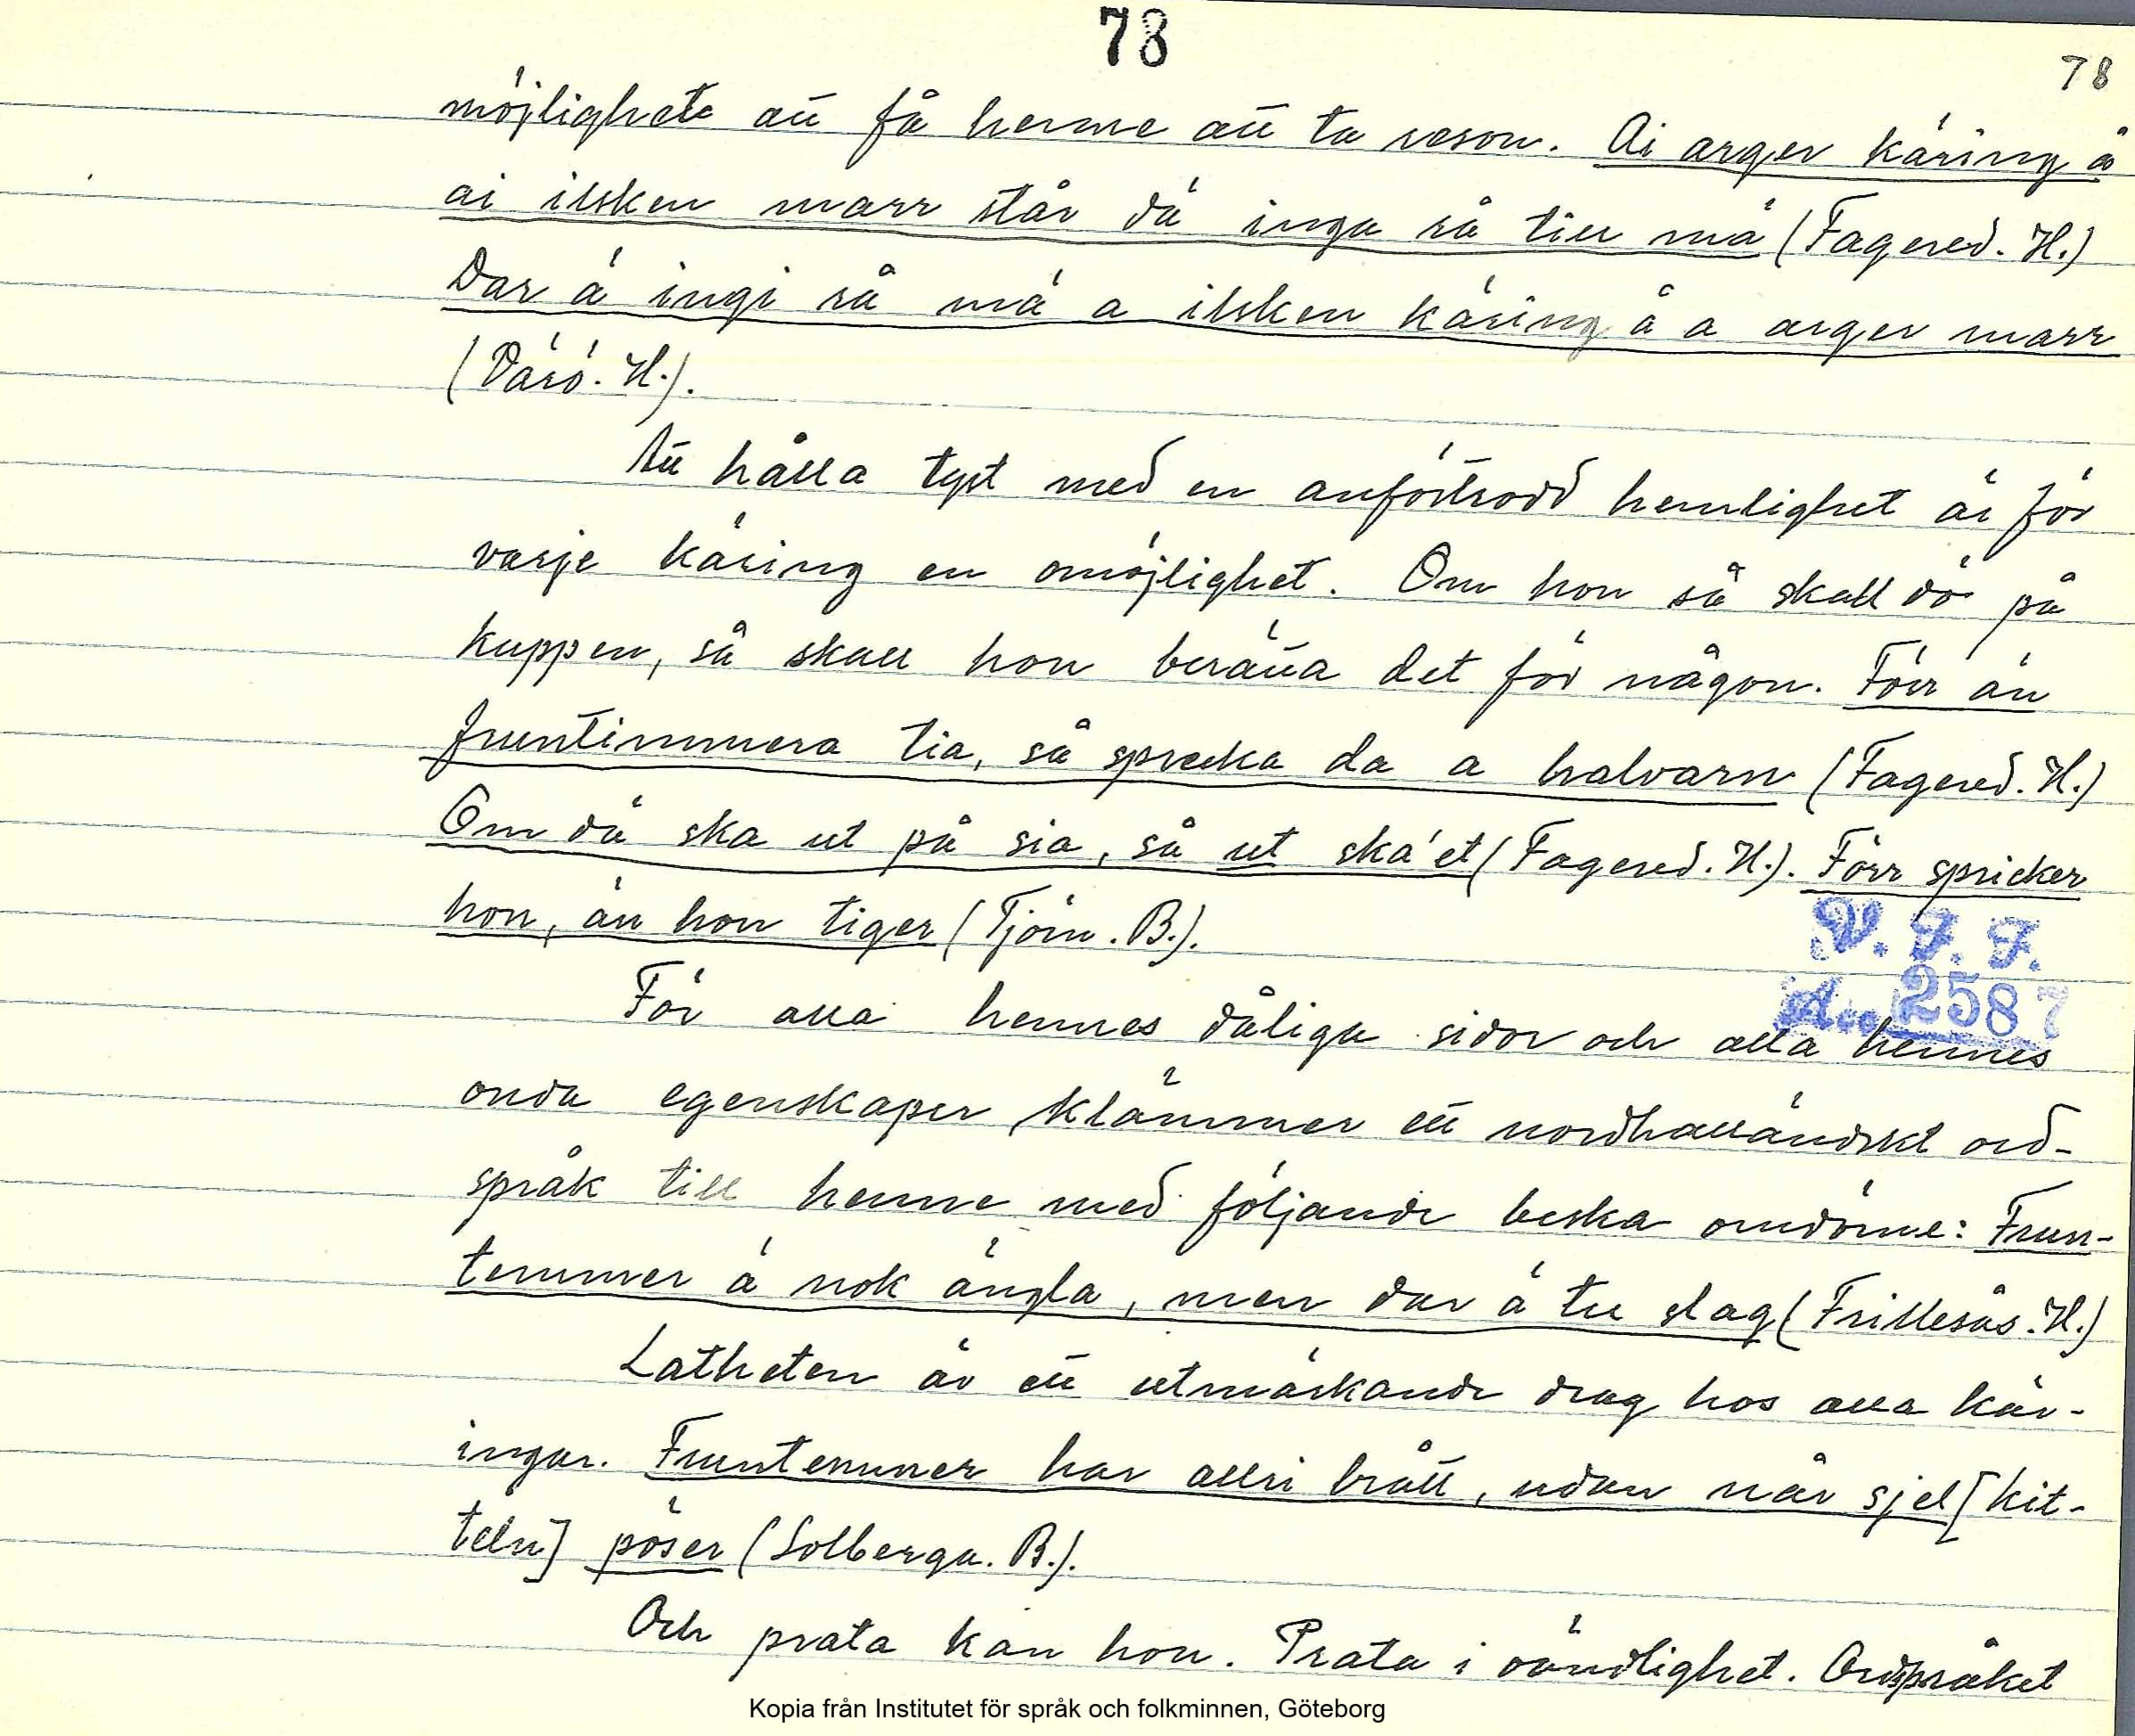 78
78
möjlighet att få henne att ta reson. Ai arger käring å
ai ilsken marr står dä inga rå till mä (Fagered. H.)
Dar ä ingi rå mä a ilsken käring å a arger marr
(Värö. H.).
Att hålla tyst med en anförtrodd hemlighet är för
varje käring en omöjlighet. Om hon så skall dö på
kuppen, så skall hon berätta det för någon. Förr än
fruntimmera tia, så spricka da a halvarn (Fagered. H.)
Om dä ska ut på sia, så ut ska'et (Fagered. H.). Förr spricker
hon, än hon tiger (Tjörn. B.).
V. F. F.
Acc 2587
För alla hennes dåliga sidor och alla hennes
onda egenskaper klämmer ett nordhalländskt ord-
språk till henne med följande beska omdöme: Frun-
temmer ä nok ängla, men dar ä tu slag (Frillesås. H.)
Latheten är ett utmärkande drag hos alla kär-
ingar. Fruntemmer har allri brått, udan når sjel [kit-
teln] pöser (Solberga. B.).
Och prata kan hon. Prata i oändlighet. Ordspråket
Kopia från Institutet för språk och folkminnen, Göteborg